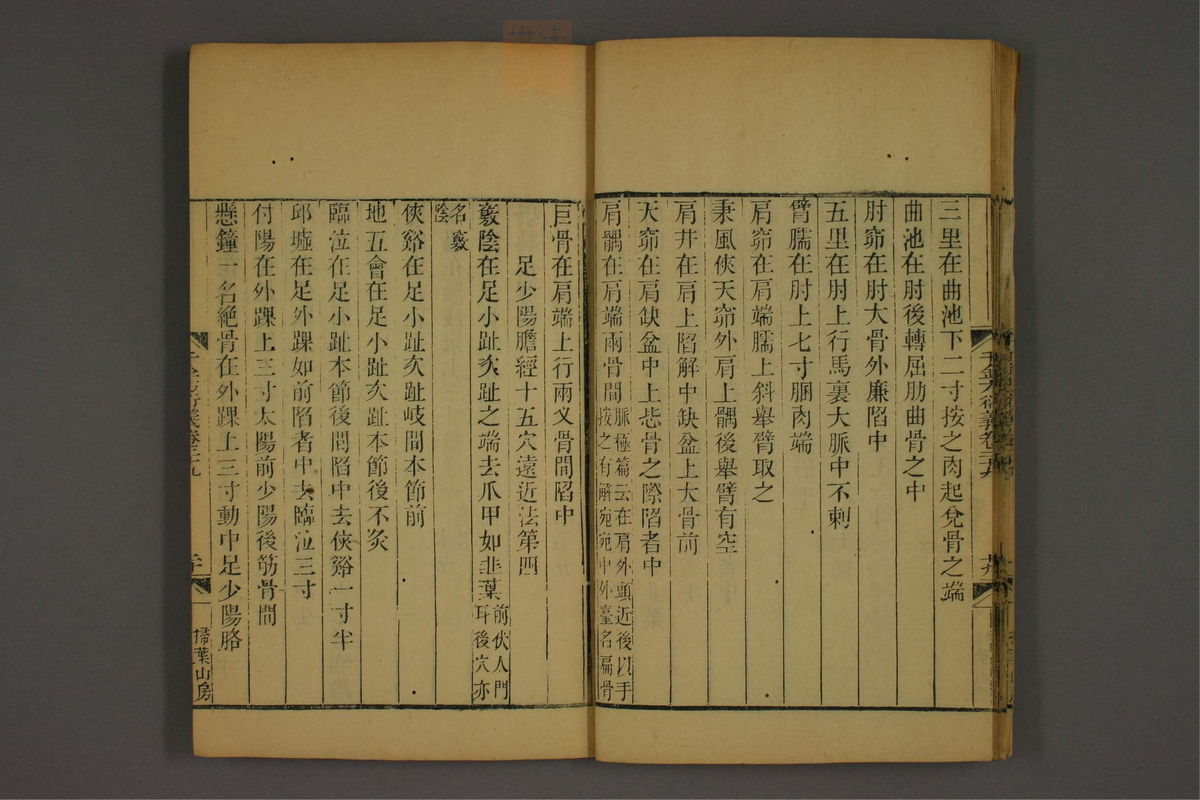 三里在曲池下二寸按之肉起兌骨之端
曲池在肘後轉屈肋曲骨之中
肘窌在肘大骨外廉陷中
五里在肘上行馬裏大脈中不刺
臂臑在肘上七寸䐃肉端
肩窌在肩端臑上斜舉臂取之
秉風俠天窌外肩上髃後舉臂有空
肩井在肩上陷解中缺盆上大骨前
天窌在肩缺盆中上毖骨之際陷者中
肩髃在肩端兩骨間
脈極篇云在肩外頭近後以手
按之有解宛宛中外臺名扁骨
巨骨在肩端上行兩叉骨間陷中
足少陽膽經十五穴遠近法第四
竅陰在足小趾次趾之端去爪甲如韭葉
前伏人門
耳後穴亦
名竅
陰
俠谿在足小趾次趾歧間本節前
地五會在足小趾次趾本節後不灸
臨泣在足小趾本節後間陷中去俠谿一寸半
邱墟在足外踝如前陷者中去臨泣三寸
付陽在外踝上三寸太陽前少陽後筋骨間
懸鐘一名絕骨在外踝上三寸動中足少陽胳
掃葉山房